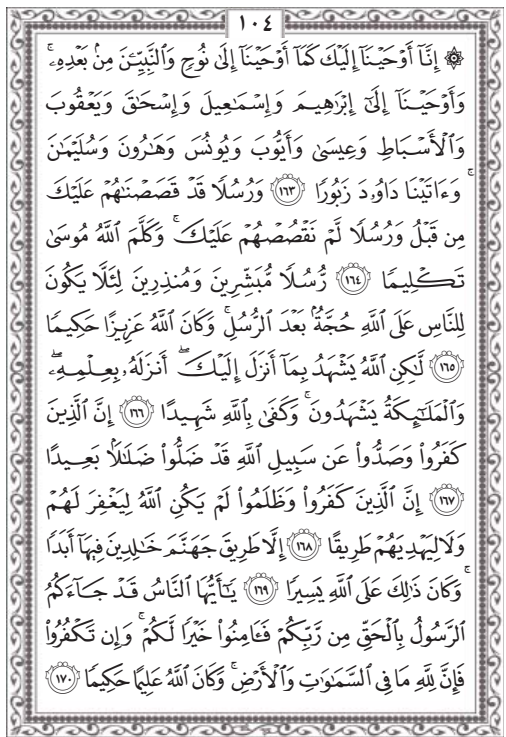 ١٠٤
۞ إِنَّآ أَوْحَيْنَآ إِلَيْكَ كَمَآ أَوْحَيْنَآ إِلَىٰ نُوحٍ وَٱلنَّبِيِّـۧنَ مِنۢ بَعْدِهِۦۚ
وَأَوْحَيْنَآ إِلَىٰٓ إِبْرَٰهِيمَ وَإِسْمَٰعِيلَ وَإِسْحَٰقَ وَيَعْقُوبَ
وَٱلْأَسْبَاطِ وَعِيسَىٰ وَأَيُّوبَ وَيُونُسَ وَهَٰرُونَ وَسُلَيْمَٰنَ
ۚ وَءَاتَيْنَا دَاوُۥدَ زَبُورًا ١٦٣ وَرُسُلًا قَدْ قَصَصْنَٰهُمْ عَلَيْكَ
مِن قَبْلُ وَرُسُلًا لَّمْ نَقْصُصْهُمْ عَلَيْكَۚ وَكَلَّمَ ٱللَّهُ مُوسَىٰ
تَكْلِيمًا ١٦٤ رُّسُلًا مُّبَشِّرِينَ وَمُنذِرِينَ لِئَلَّا يَكُونَ
لِلنَّاسِ عَلَى ٱللَّهِ حُجَّةٌۢ بَعْدَ ٱلرُّسُلِۚ وَكَانَ ٱللَّهُ عَزِيزًا حَكِيمًا
١٦٥ لَّٰكِنِ ٱللَّهُ يَشْهَدُ بِمَآ أَنزَلَ إِلَيْكَۖ أَنزَلَهُۥ بِعِلْمِهِۦۖ
وَٱلْمَلَٰٓئِكَةُ يَشْهَدُونَۚ وَكَفَىٰ بِٱللَّهِ شَهِيدًا ١٦٦ إِنَّ ٱلَّذِينَ
كَفَرُوا۟ وَصَدُّوا۟ عَن سَبِيلِ ٱللَّهِ قَدْ ضَلُّوا۟ ضَلَٰلًۢا بَعِيدًا
١٦٧ إِنَّ ٱلَّذِينَ كَفَرُوا۟ وَظَلَمُوا۟ لَمْ يَكُنِ ٱللَّهُ لِيَغْفِرَ لَهُمْ
وَلَا لِيَهْدِيَهُمْ طَرِيقًا ١٦٨ إِلَّا طَرِيقَ جَهَنَّمَ خَٰلِدِينَ فِيهَآ أَبَدًا
ۚ وَكَانَ ذَٰلِكَ عَلَى ٱللَّهِ يَسِيرًا ١٦٩ يَٰٓأَيُّهَا ٱلنَّاسُ قَدْ جَآءَكُمُ
ٱلرَّسُولُ بِٱلْحَقِّ مِن رَّبِّكُمْ فَـَٔامِنُوا۟ خَيْرًا لَّكُمْۚ وَإِن تَكْفُرُوا۟
فَإِنَّ لِلَّهِ مَا فِى ٱلسَّمَٰوَٰتِ وَٱلْأَرْضِۚ وَكَانَ ٱللَّهُ عَلِيمًا حَكِيمًا ١٧٠